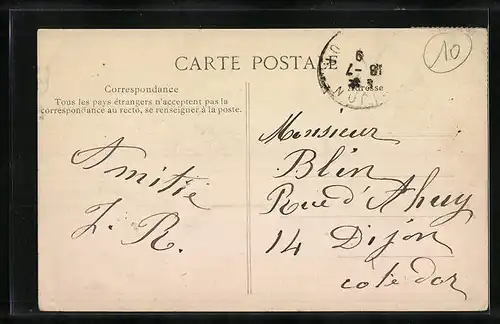 10
CARTE POSTALE
Correspondance
Tous les pays étrangers n'acceptent pas la
correspondance au recto, se renseigner à la poste.
Adresse
18-7
9
Amitié
J. R.
Monsieur
Blin
Rue d'Ahuy
14 Dijon
cote dor